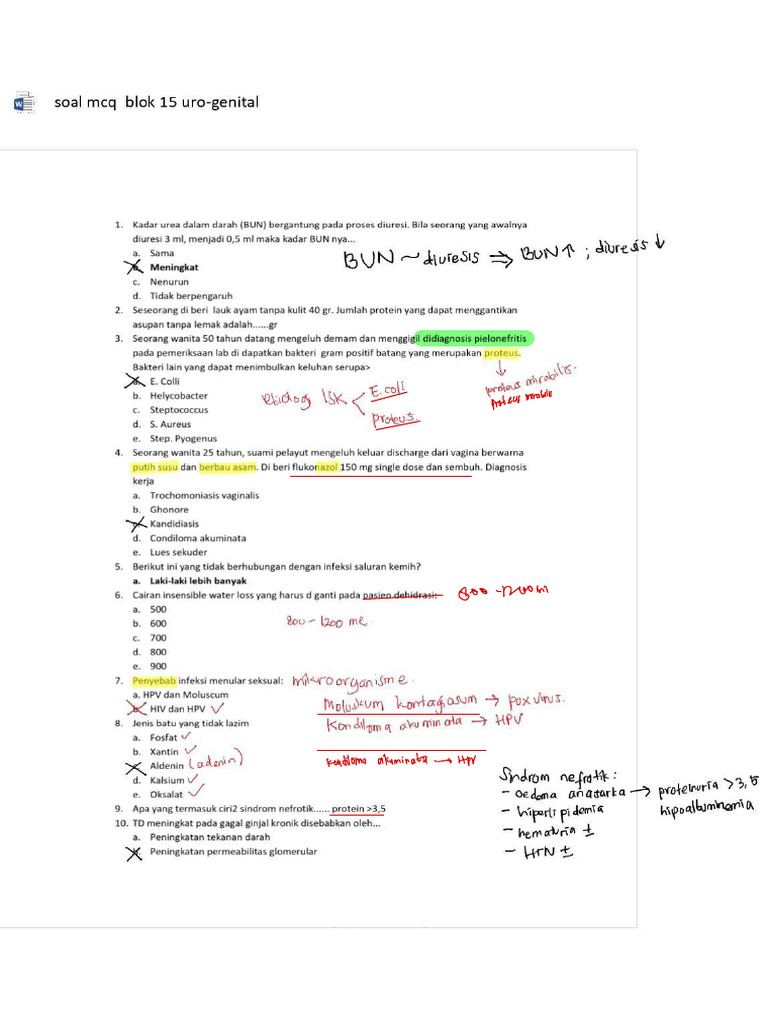 soal mcq blok 15 uro-genital
1. Kadar urea dalam darah (BUN) bergantung pada proses diuresi. Bila seorang yang awalnya
diuresi 3 ml, menjadi 0,5 ml maka kadar BUN nya...
a. Sama
b. Meningkat
c. Nenurun
d. Tidak berpengaruh
BUN ~ diuresis ⇒ BUN ↑ ; diuresis ↓
2. Seseorang di beri lauk ayam tanpa kulit 40 gr. Jumlah protein yang dapat menggantikan
asupan tanpa lemak adalah......gr
3. Seorang wanita 50 tahun datang mengeluh demam dan menggigil didiagnosis pielonefritis
pada pemeriksaan lab di dapatkan bakteri gram positif batang yang merupakan proteus.
Bakteri lain yang dapat menimbulkan keluhan serupa>
a. E. Colli
b. Helycobacter
c. Steptococcus
d. S. Aureus
e. Step. Pyogenus
etiologi ISK < E.coli
proteus.
↓
proteus mirabilis.
Proteus
4. Seorang wanita 25 tahun, suami pelayut mengeluh keluar discharge dari vagina berwarna
putih susu dan berbau asam. Di beri flukonazol 150 mg single dose dan sembuh. Diagnosis
kerja
a. Trochomoniasis vaginalis
b. Ghonore
c. Kandidiasis
d. Condiloma akuminata
e. Lues sekuder
5. Berikut ini yang tidak berhubungan dengan infeksi saluran kemih?
a. Laki-laki lebih banyak
6. Cairan insensible water loss yang harus d ganti pada pasien dehidrasi: 800 - 1200 m
a. 500
b. 600
c. 700
d. 800
e. 900
800 - 1200 ml
7. Penyebab infeksi menular seksual: mikroorganisme.
a. HPV dan Moluscum
b. HIV dan HPV ✓
Moluskum kontagiosum → poxvirus.
Kondiloma akuminata → HPV
8. Jenis batu yang tidak lazim
a. Fosfat ✓
b. Xantin ✓
c. Aldenin (adenin)
d. Kalsium ✓
e. Oksalat ✓
kondiloma akuminata → HPV
9. Apa yang termasuk ciri2 sindrom nefrotik...... protein >3,5
10. TD meningkat pada gagal ginjal kronik disebabkan oleh...
a. Peningkatan tekanan darah
b. Peningkatan permeabilitas glomerular
Sindrom nefrotik :
- oedema anasarka → proteinuria > 3,5
hipoalbuminemia
- hiperlipidemia
- hematuria ±
- HTN ±